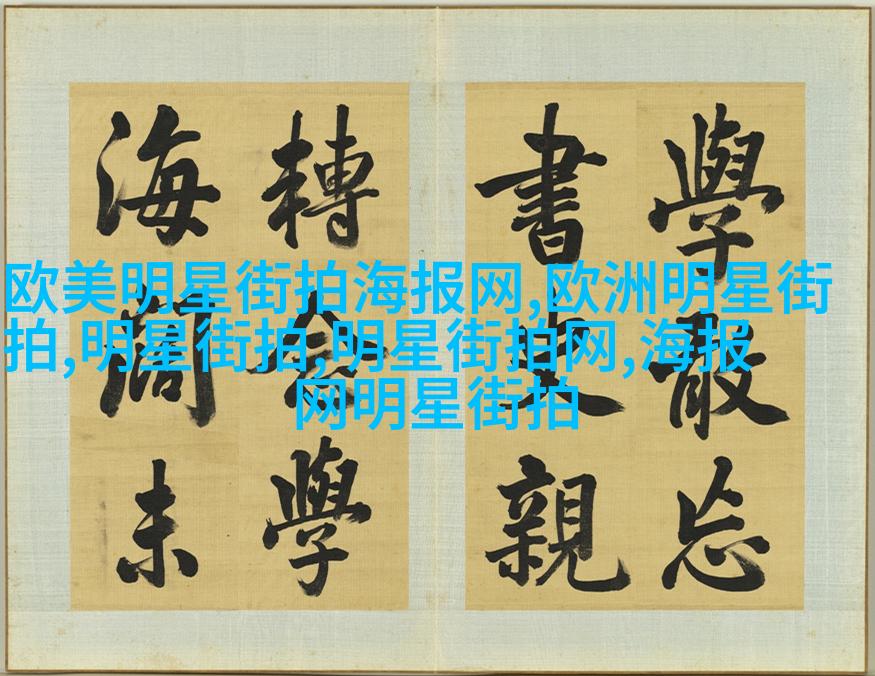 欧美明星街拍海报网,欧洲明星街
拍,明星街拍,明星街拍网,海报
网明星街拍
學敢忘
書親
轉學
海未